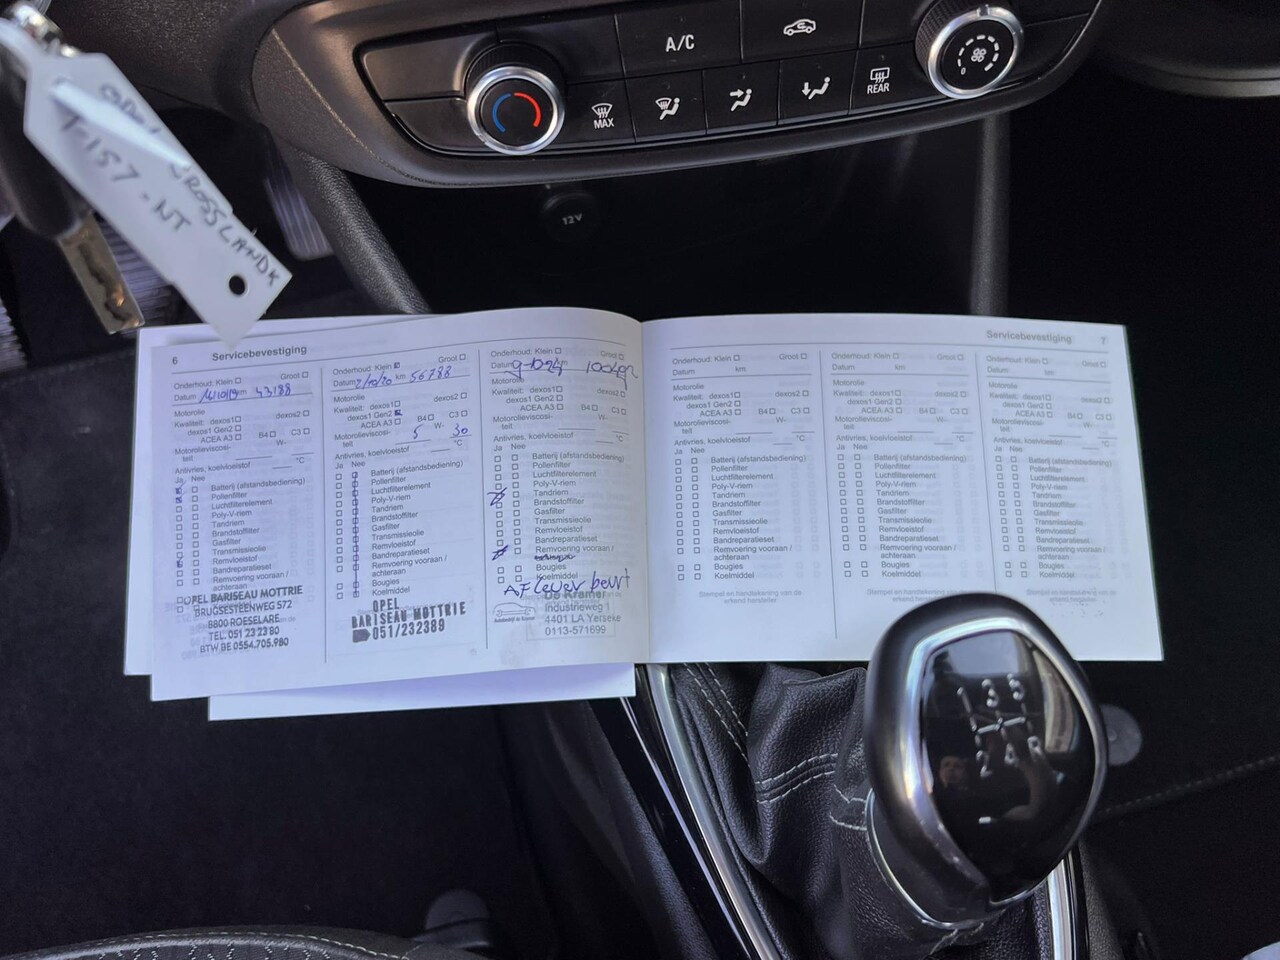 A/C
MAX
REAR
0
12V
OPEL CROSSLANDX
T-157-NT
6 Servicebevestiging
Onderhoud: Klein Groot
Datum 14/10/19 km 43188
Motorolie
Kwaliteit: dexos1 dexos2
dexos1 Gen2
ACEA A3 B4 C3
Motorolieviscosi- W-
teit
Antivries, koelvloeistof °C
Ja Nee
Batterij (afstandsbediening)
Pollenfilter
Luchtfilterelement
Poly-V-riem
Tandriem
Brandstoffilter
Gasfilter
Transmissieolie
Remvloeistof
Bandreparatieset
Remvoering vooraan /
achteraan
OPEL BARISEAU MOTTRIE
BRUGSESTEENWEG 572
8800 ROESELARE
TEL. 051 23 23 80
BTW BE 0554.705.980
Onderhoud: Klein Groot
Datum 2/10/20 km 56788
Motorolie
Kwaliteit: dexos1 dexos2
dexos1 Gen2
ACEA A3 B4 C3
Motorolieviscosi- W-
teit 5 30
Antivries, koelvloeistof °C
Ja Nee
Batterij (afstandsbediening)
Pollenfilter
Luchtfilterelement
Poly-V-riem
Tandriem
Brandstoffilter
Gasfilter
Transmissieolie
Remvloeistof
Bandreparatieset
Remvoering vooraan /
achteraan
Bougies
Koelmiddel
OPEL
BARISEAU MOTTRIE
051/232389
Onderhoud: Klein Groot
Datum 9-10-24
Motorolie
Kwaliteit: dexos1 dexos2
dexos1 Gen2
ACEA A3 B4 C3
Motorolieviscosi- W-
teit
Antivries, koelvloeistof °C
Ja Nee
Batterij (afstandsbediening)
Pollenfilter
Luchtfilterelement
Poly-V-riem
Tandriem
Brandstoffilter
Gasfilter
Transmissieolie
Remvloeistof
Bandreparatieset
Remvoering vooraan /
Bougies
Koelmiddel
AFlever beurt
De Kramer
Industrieweg 1
4401 LA Yerseke
0113-571699
Servicebevestiging 7
Onderhoud: Klein Groot
Datum km
Motorolie
Kwaliteit: dexos1 dexos2
dexos1 Gen2
ACEA A3 B4 C3
Motorolieviscosi- W-
teit
Antivries, koelvloeistof °C
Ja Nee
Batterij (afstandsbediening)
Pollenfilter
Luchtfilterelement
Poly-V-riem
Tandriem
Brandstoffilter
Gasfilter
Transmissieolie
Remvloeistof
Bandreparatieset
Remvoering vooraan /
achteraan
Bougies
Koelmiddel
Stempel en handtekening van de
erkend hersteller
Onderhoud: Klein Groot
Datum km
Motorolie
Kwaliteit: dexos1 dexos2
dexos1 Gen2
ACEA A3 B4 C3
Motorolieviscosi- W-
teit
Antivries, koelvloeistof °C
Ja Nee
Batterij (afstandsbediening)
Pollenfilter
Luchtfilterelement
Poly-V-riem
Tandriem
Brandstoffilter
Gasfilter
Transmissieolie
Remvloeistof
Bandreparatieset
Remvoering vooraan /
achteraan
Bougies
Koelmiddel
Stempel en handtekening van de
erkend hersteller
Onderhoud: Klein Groot
Datum km
Motorolie
Kwaliteit: dexos1 dexos2
dexos1 Gen2
ACEA A3 B4 C3
Motorolieviscosi- W-
teit
Antivries, koelvloeistof °C
Ja Nee
Batterij (afstandsbediening)
Pollenfilter
Luchtfilterelement
Poly-V-riem
Tandriem
Brandstoffilter
Gasfilter
Transmissieolie
Remvloeistof
Bandreparatieset
Remvoering vooraan /
achteraan
Bougies
Koelmiddel
Stempel en handtekening van de
erkend hersteller
1 3 5
2 4 R